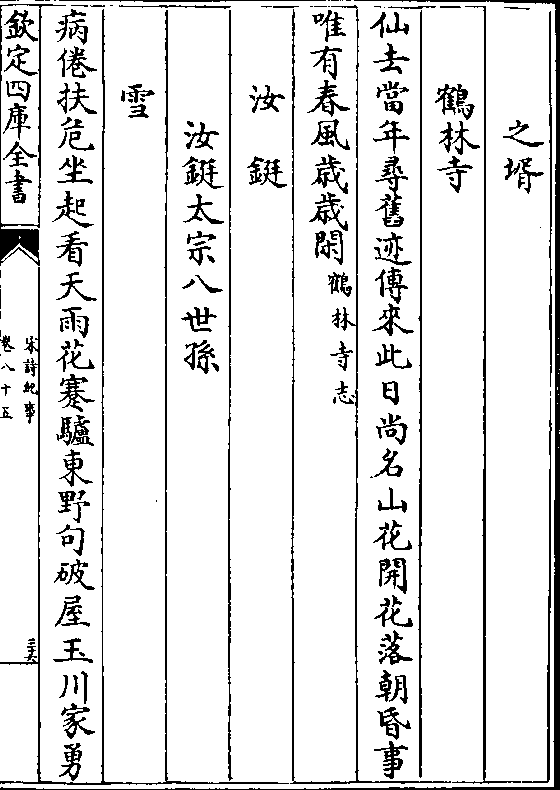 之壻
鶴林寺
仙去當年尋舊迹傳來此日尚名山花開花落朝昏事
唯有春風歳歳閑鶴林寺志
汝鋌
汝鋌太宗八世孫
雪
病倦扶危坐起看天雨花蹇驢東野句破屋玉川家勇
欽定四庫全書
宋詩紀事
卷八十五
三六